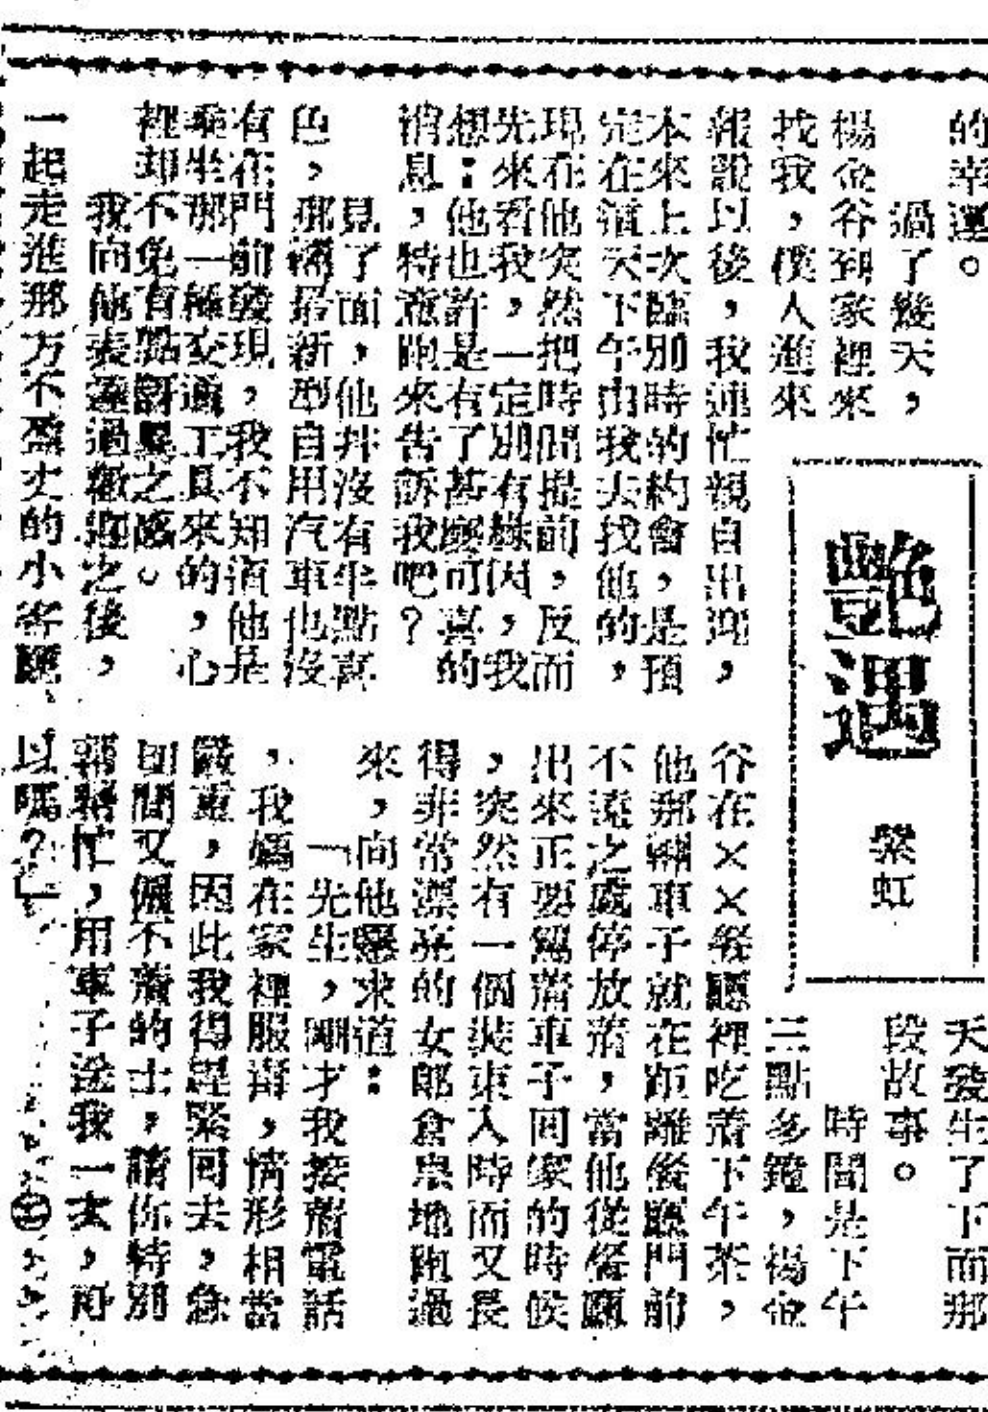 的幸運。
過了幾天，
楊金谷到家裡來
找我，僕人進來
報說以後，我連忙親自出迎，
本來上次臨別時的約會，是預
定在這天下午由我去找他的，
現在他突然把時間提前，反而
先來看我，一定別有緣因，我
想：他也許是有了甚麼可喜的
消息，特意跑來告訴我吧？
見了面，他并沒有半點喜
色，那輛最新型自用汽車也沒
有在門前發現，我不知道他是
乘坐那一種交通工具來的，心
裡却不免有點訝異之感。
我向他表達過歉迎之後，
一起走進那方不盈丈的小客廳、
艷遇
紫虹
天發生了下面那
段故事。
時間是下午
三點多鐘，楊金
谷在××餐廳裡吃着下午茶，
他那輛車子就在距離餐廳門前
不遠之處停放着，當他從餐廳
出來正要駕着車子回家的時候
，突然有一個裝束入時而又長
得非常漂亮的女郎倉皇地跑過
來，向他懇求道：
「先生，剛才我接着電話
，我媽在家裡服毒，情形相當
嚴重，因此我得趕緊回去，急
切間又僱不着的士，請你特別
幫幫忙，用車子送我一次，可
以嗎？」
㊆